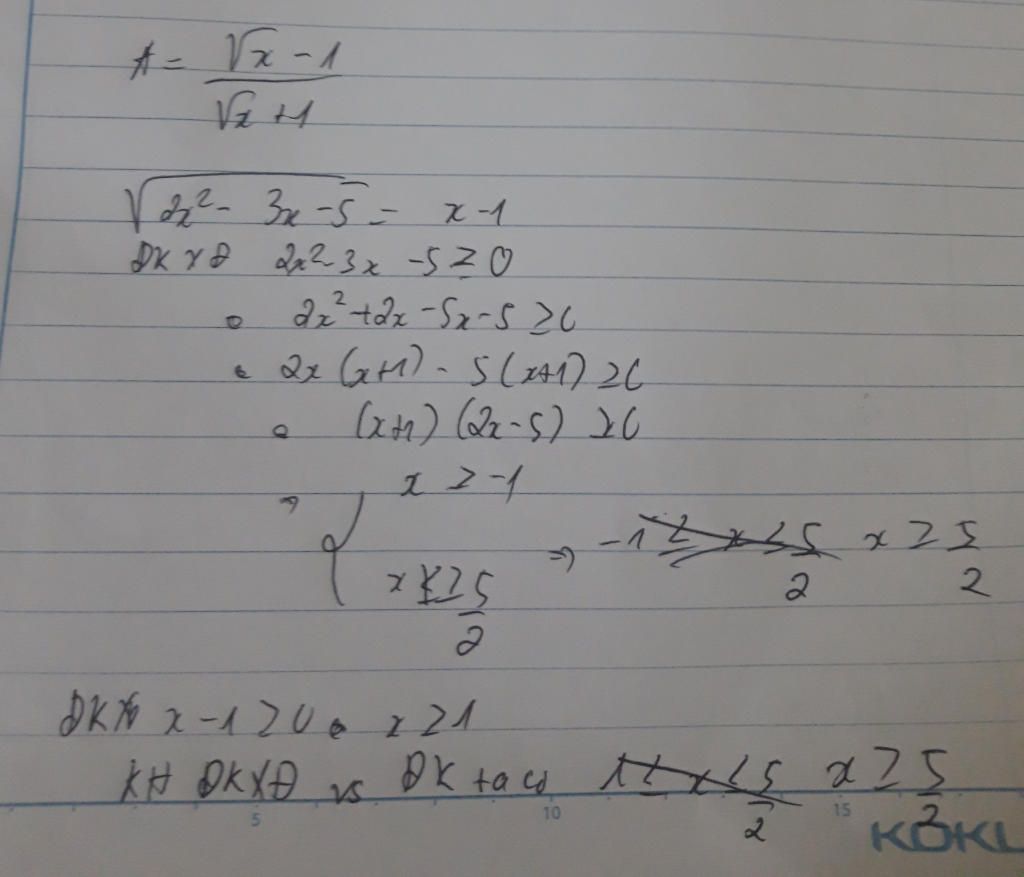 A = (√x - 1)/(√x + 1)
√(2x² - 3x - 5) = x - 1
ĐKXĐ 2x² - 3x - 5 ≥ 0
2x² + 2x - 5x - 5 ≥ 0
2x (x+1) - 5(x+1) ≥ 0
(x+1) (2x-5) ≥ 0
⇒ { x ≥ -1
x ≥ 5/2 ⇒ -1 ≤ x ≤ 5/2 x ≥ 5/2
ĐK x - 1 ≥ 0 x ≥ 1
KH ĐKXĐ vs ĐK ta có 1 ≤ x ≤ 5/2 x ≥ 5/2
5 10 15